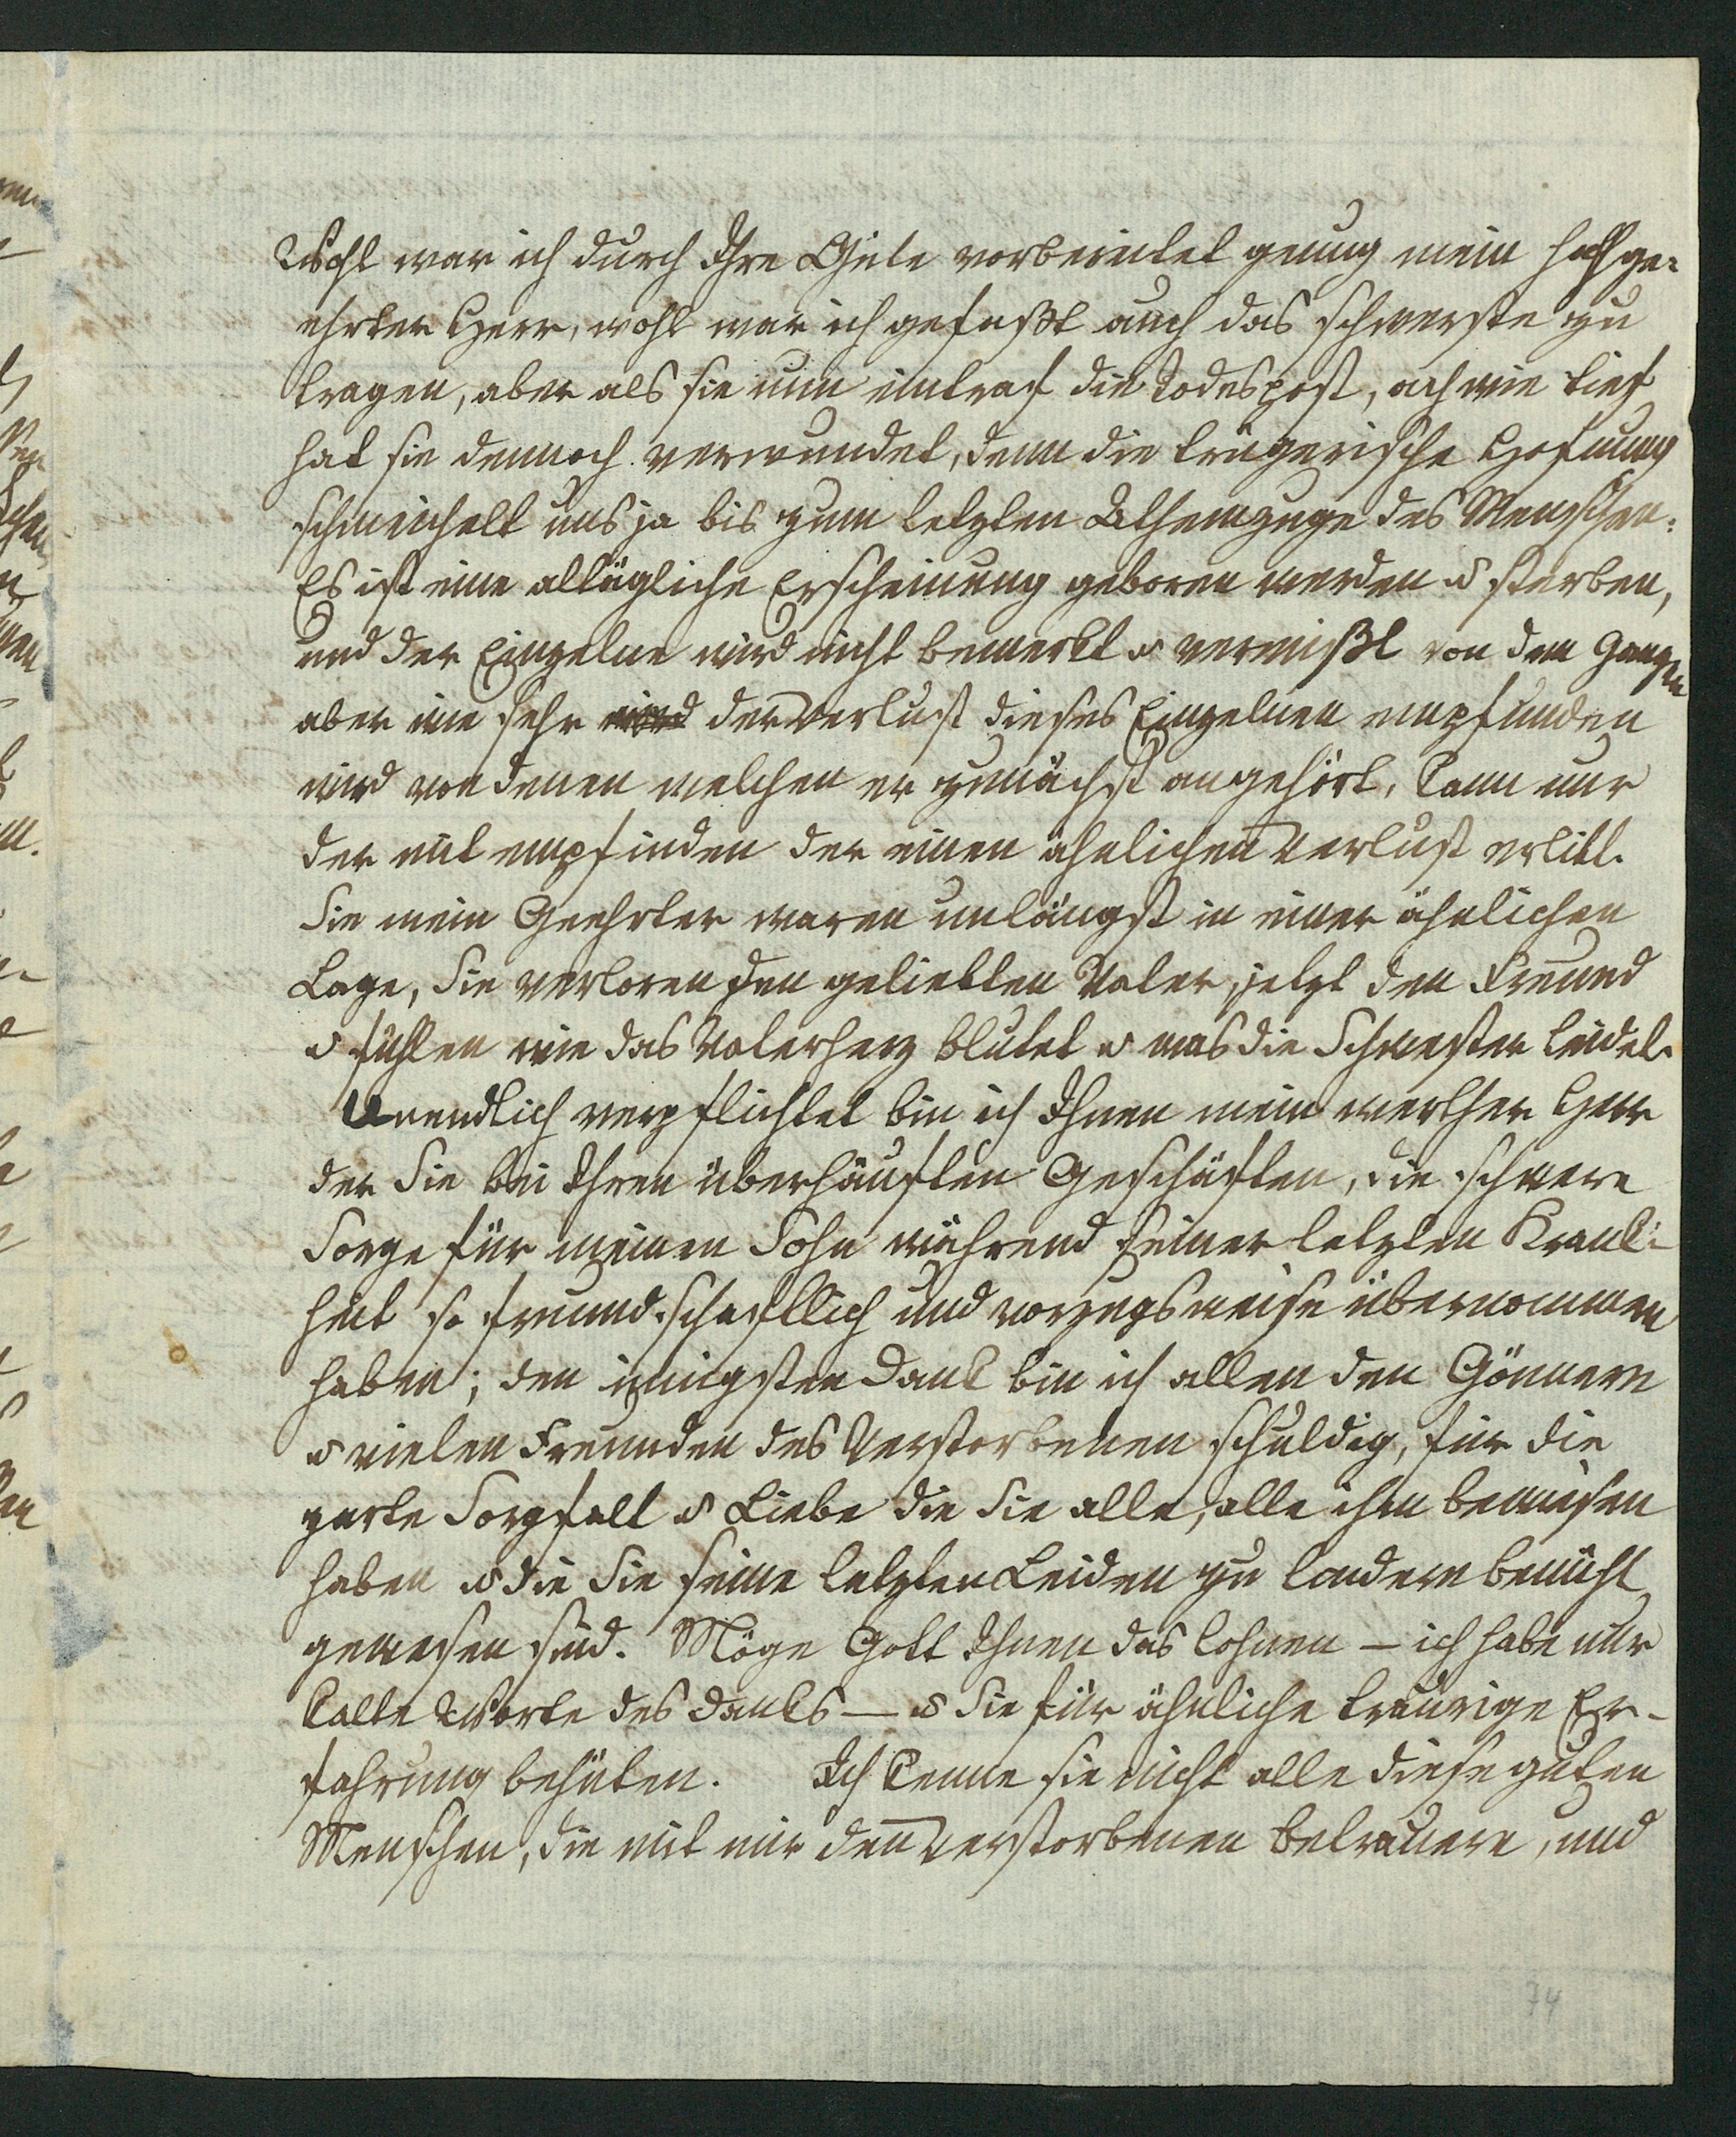 Wohl war ich durch Ihre Güte vorbereitet genug mein hochge-
ehrter Herr, wohl war ich gefaßt auch das schwerste zu
tragen, aber als sie nun eintraf die Todespost, ach wie tief
hat sie dennoch verwundet, denn die trügerische Hofnung
schmeichelt uns ja bis zum letzten Athemzuge des Menschen.
Es ist eine alltägliche Erscheinung geboren werden u sterben,
und der Einzelne wird nicht bemerkt u vermißt von dem Ganzen
aber wie sehr wird der Verlust dieses Einzelnen empfunden
wird von denen welchen er zunächst angehört, kann nur
der mit empfinden der einen ähnlichen Verlust erlitt.
Sie mein Geehrter waren unlängst in einer ähnlichen
Lage, Sie verloren den geliebten Vater, jetzt den Freund
u fühlen wie das Vaterherz blutet u was die Schwester leidet.
Unendlich verpflichtet bin ich Ihnen mein werther Herr
der Sie bei Ihren überhäuften Geschäften, die schwere
Sorge für meinen Sohn während seiner letzten Krank-
heit so freundschaftlich und vorzugsweise übernommen
haben; den innigsten Dank bin ich allen den Gönnern
u vielen Freunden des Verstorbenen schuldig, für die
zarte Sorgfalt u Liebe die Sie alle, alle ihm bewiesen
haben u die Sie seine letzten Leiden zu lindern bemüht
gewesen sind. Möge Gott Ihnen das lohnen – ich habe nur
kalte Worte des Danks – u Sie für ähnliche traurige Er-
fahrung behüten. Ich kenne sie nicht alle diese guten
Menschen, die mit mir den Verstorbenen betrauern, und
74